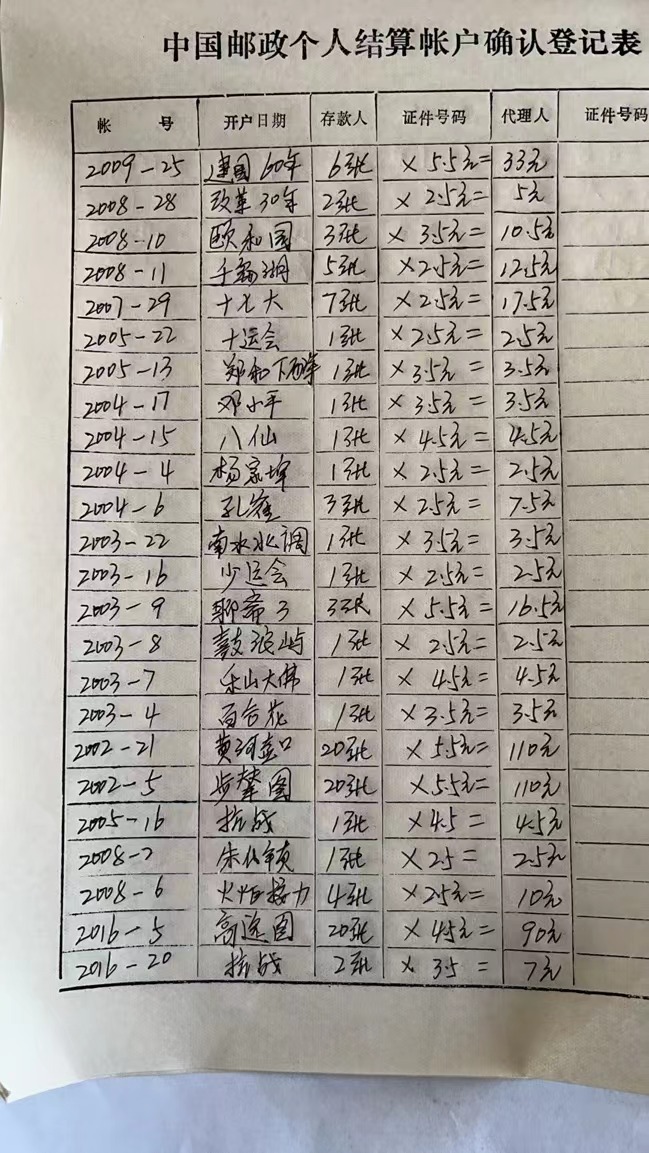 中国邮政个人结算帐户确认登记表
帐 号 开户日期 存款人 证件号码 代理人 证件号码
2009-25 建国60年 6张 ×5.5元= 33元
2008-28 改革30年 2张 ×2.5元= 5元
2008-10 颐和园 3张 ×3.5元= 10.5元
2008-11 干 湖 5张 ×2.5元= 12.5元
2007-29 十七大 7张 ×2.5元= 17.5元
2005-22 十运会 1张 ×2.5元= 2.5元
2005-13 郑和下西洋 1张 ×3.5元= 3.5元
2004-17 邓小平 1张 ×3.5元= 3.5元
2004-15 八仙 1张 ×4.5元= 4.5元
2004-4 杨家埠 1张 ×2.5元= 2.5元
2004-6 孔雀 3张 ×2.5元= 7.5元
2003-22 南水北调 1张 ×3.5元= 3.5元
2003-16 少运会 1张 ×2.5元= 2.5元
2003-9 聊斋3 3张 ×5.5元= 16.5元
2003-8 鼓浪屿 1张 ×2.5元= 2.5元
2003-7 乐山大佛 1张 ×4.5元= 4.5元
2003-4 百合花 1张 ×3.5元= 3.5元
2002-21 黄河壶口 20张 ×5.5元= 110元
2002-5 步辇图 20张 ×5.5元= 110元
2005-16 抗战 1张 ×4.5= 4.5元
2008-2 朱仙镇 1张 ×2.5= 2.5元
2008-6 火炬接力 4张 ×2.5元= 10元
2016-5 高逸图 20张 ×4.5元= 90元
2016-20 抗战 2张 ×3.5= 7元